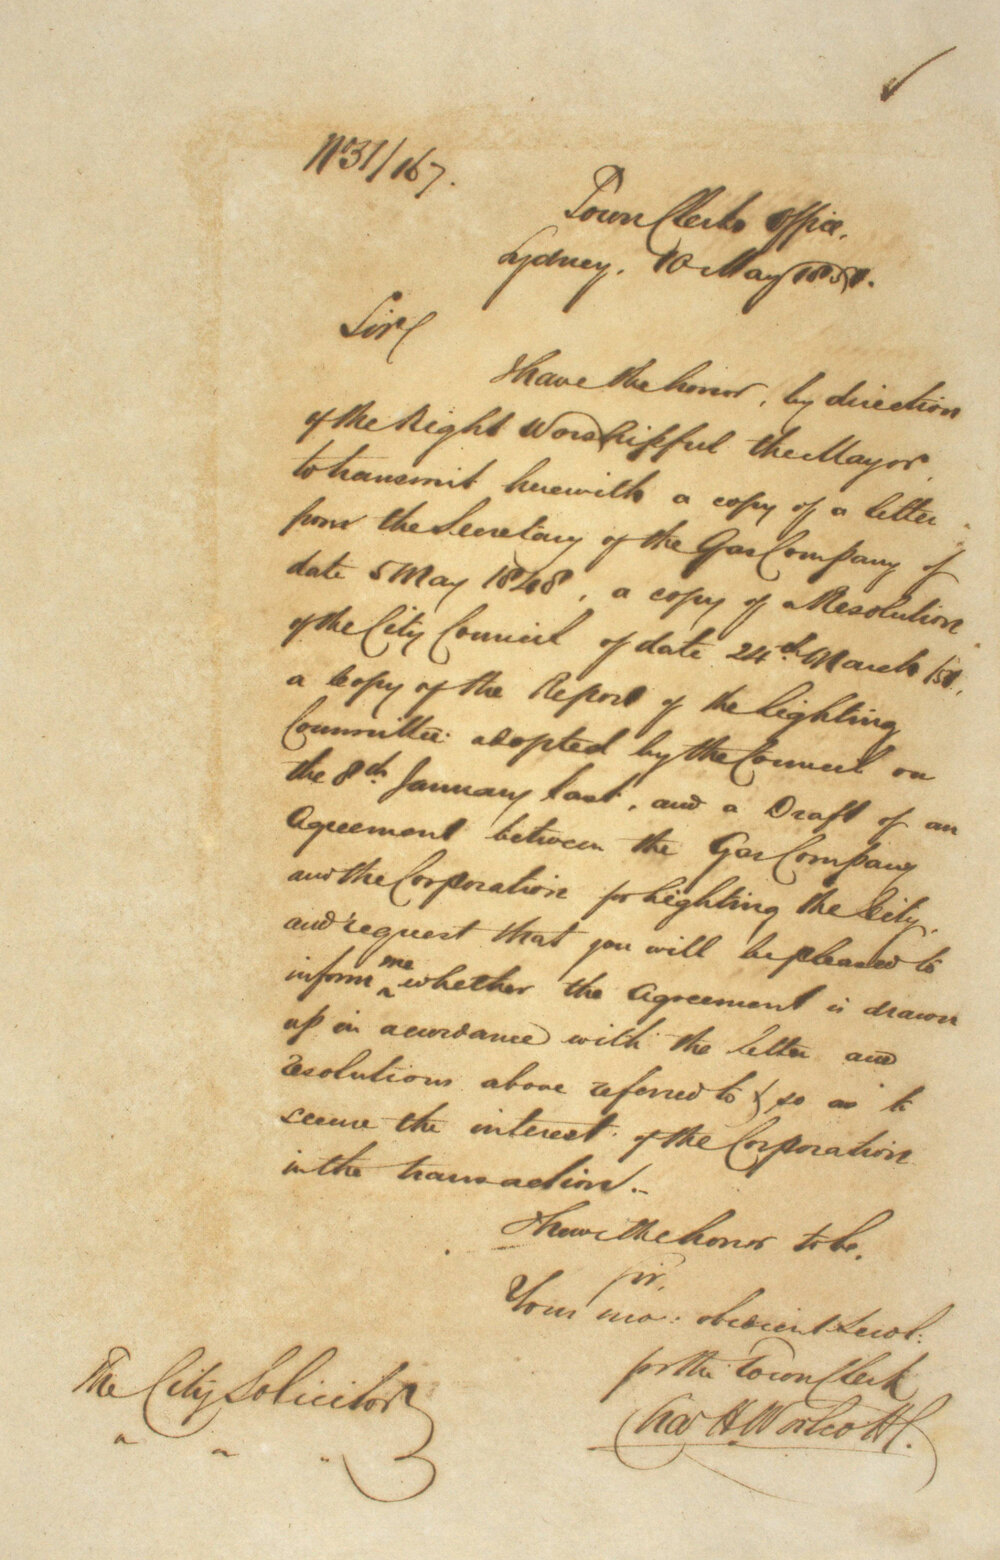 No 31/167.
Town Clerks Office.
Sydney. 10 May 1851.
Sir
I have the honor, by direction
of the Right Worshipful the Mayor,
to transmit herewith a copy of a letter
from the Secretary of the Gas Company of
date 5 May 1848, a copy of a Resolution
of the City Council of date 24th March /51,
a copy of the Report of the Lighting
Committee adopted by the Council on
the 8th January last, and a Draft of an
Agreement between the Gas Company
and the Corporation for Lighting the City,
and request that you will be pleased to
inform me whether the Agreement is drawn
up in accordance with the letter and
resolutions above referred to & so as to
secure the interest of the Corporation
in the transaction.
I have the honor to be,
Sir,
Your mo: obedient Servt:
for the Town Clerk
Chas H. Woolcott
The City Solicitor